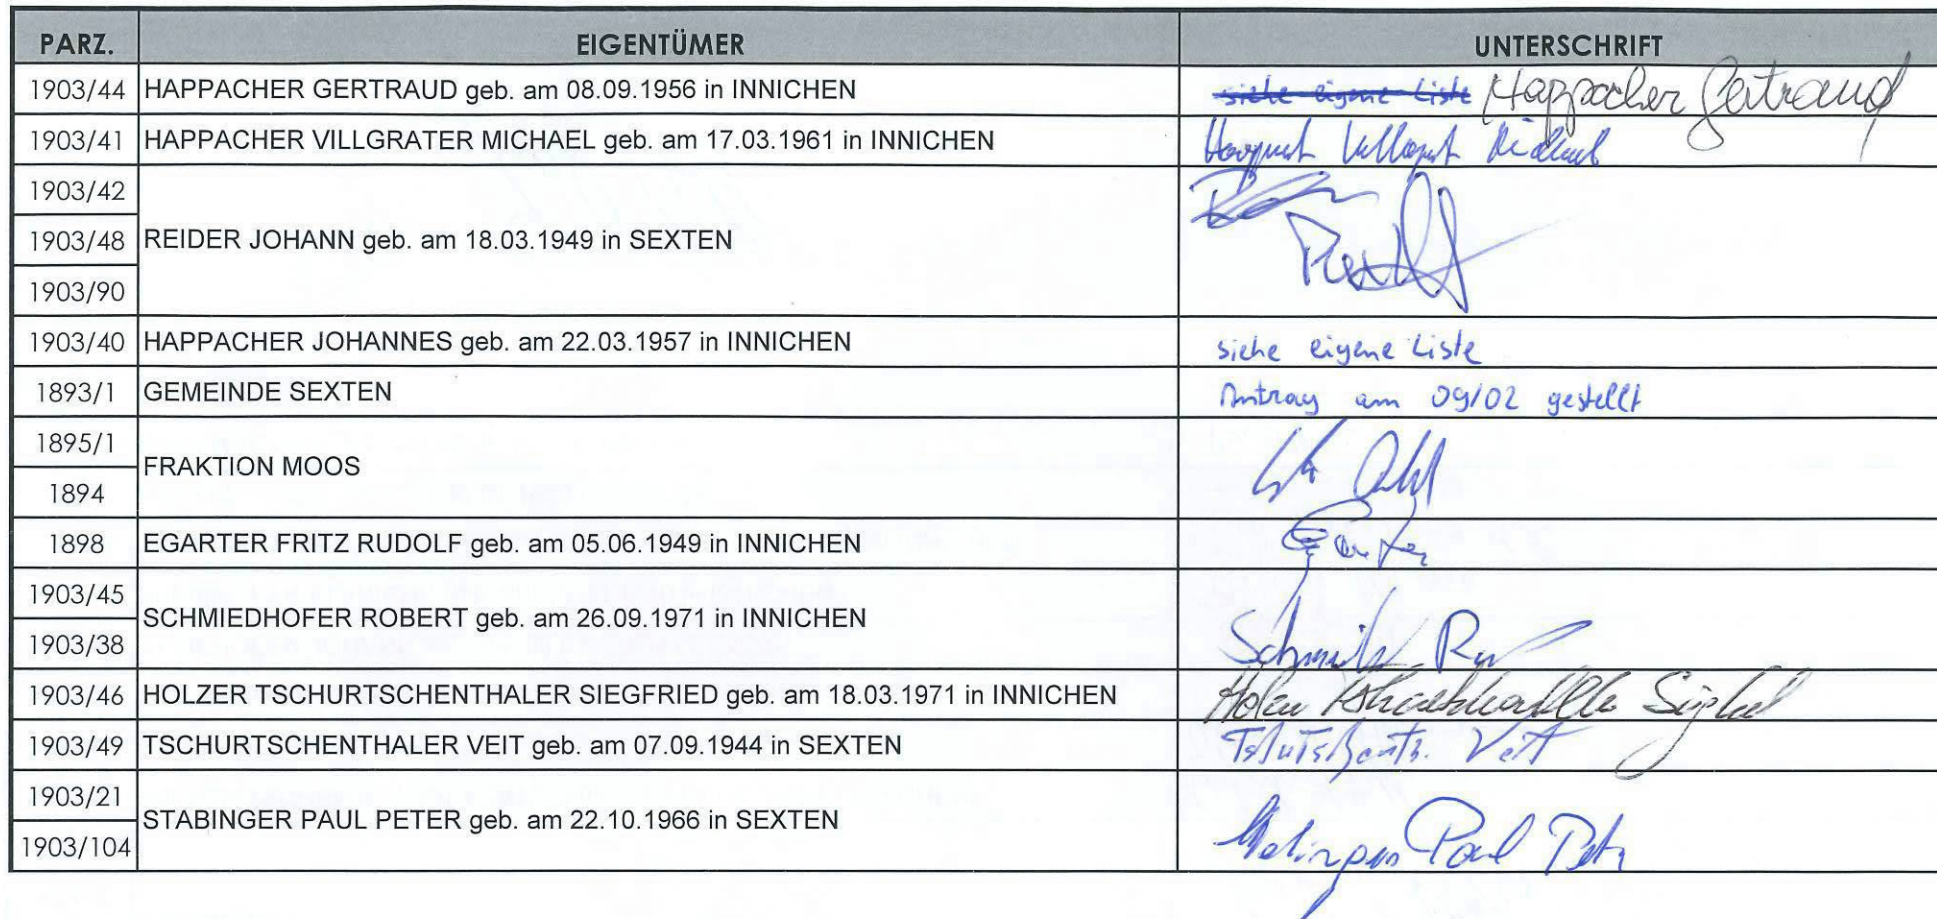 PARZ. EIGENTÜMER UNTERSCHRIFT
1903/44 HAPPACHER GERTRAUD geb. am 08.09.1956 in INNICHEN siehe eigene Liste Happacher Gertraud
1903/41 HAPPACHER VILLGRATER MICHAEL geb. am 17.03.1961 in INNICHEN
1903/42
1903/48 REIDER JOHANN geb. am 18.03.1949 in SEXTEN
1903/90
1903/40 HAPPACHER JOHANNES geb. am 22.03.1957 in INNICHEN siehe eigene Liste
1893/1 GEMEINDE SEXTEN Antrag am 09/02 gestellt
1895/1
FRAKTION MOOS
1894
1898 EGARTER FRITZ RUDOLF geb. am 05.06.1949 in INNICHEN
1903/45
SCHMIEDHOFER ROBERT geb. am 26.09.1971 in INNICHEN
1903/38
1903/46 HOLZER TSCHURTSCHENTHALER SIEGFRIED geb. am 18.03.1971 in INNICHEN
1903/49 TSCHURTSCHENTHALER VEIT geb. am 07.09.1944 in SEXTEN Veit
1903/21
STABINGER PAUL PETER geb. am 22.10.1966 in SEXTEN Paul Peter
1903/104